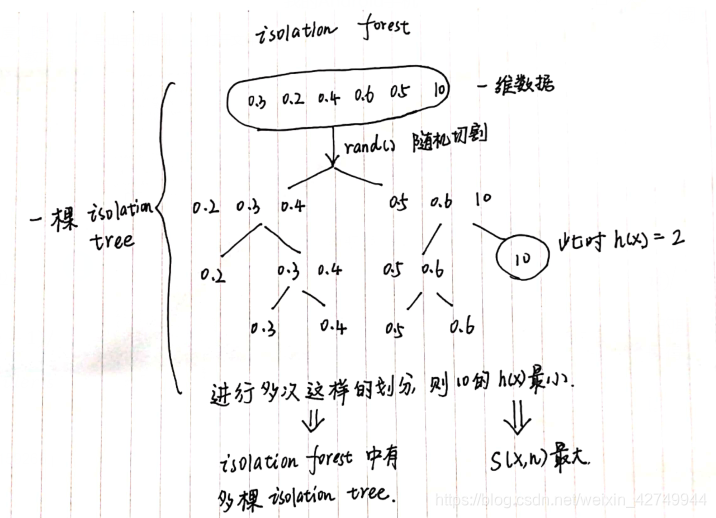 isolation forest
0.3 0.2 0.4 0.6 0.5 10
一维数据
rand() 随机切割
一棵 isolation
tree
0.2 0.3 0.4 0.5 0.6 10
0.2 0.3 0.4 0.5 0.6 10
此时 h(x) = 2
0.3 0.4 0.5 0.6
进行多次这样的划分, 则10的h(x)最小.
isolation forest 中有
多棵 isolation tree.
S(x,n)最大.
https://blog.csdn.net/weixin_42749944